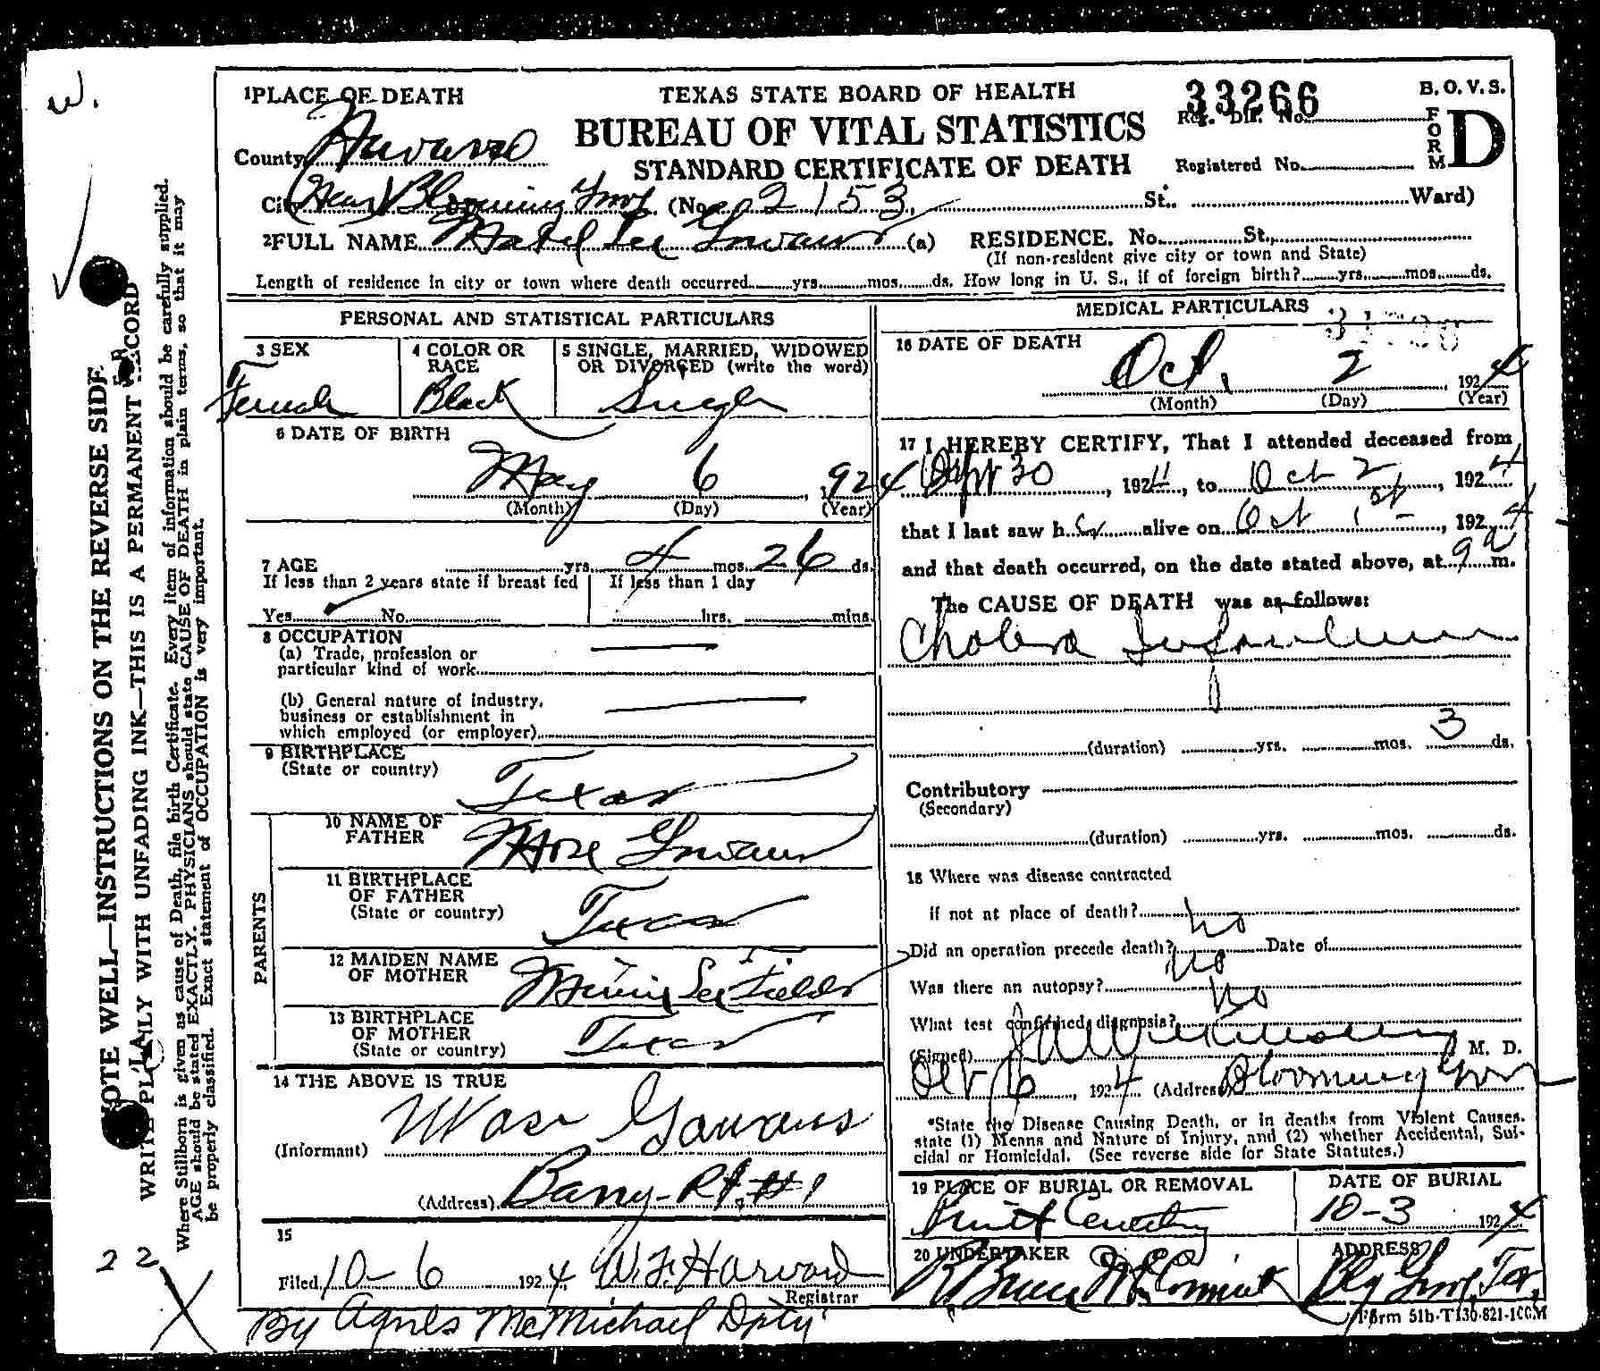 W.
1 PLACE OF DEATH
TEXAS STATE BOARD OF HEALTH
33266
B. O. V. S.
BUREAU OF VITAL STATISTICS
Reg. Dis. No.
FORM D
County Navarro
STANDARD CERTIFICATE OF DEATH
Registered No.
(Near) Blooming Grove (No. 2153, St.. Ward)
2 FULL NAME (a) RESIDENCE. No. St.,
(If non-resident give city or town and State)
Length of residence in city or town where death occurred yrs. mos. ds. How long in U. S., if of foreign birth? yrs. mos. ds.
PERSONAL AND STATISTICAL PARTICULARS
3 SEX
Female
4 COLOR OR RACE
Black
5 SINGLE, MARRIED, WIDOWED
OR DIVORCED (write the word)
Single
6 DATE OF BIRTH
May 6, 1924
(Month) (Day) (Year)
7 AGE yrs. 4 mos. 26 ds.
If less than 2 years state if breast fed
Yes ✓ No
If less than 1 day
hrs. mins.
8 OCCUPATION
(a) Trade, profession or
particular kind of work
(b) General nature of industry,
business or establishment in
which employed (or employer)
9 BIRTHPLACE
(State or country) Texas
PARENTS
10 NAME OF
FATHER Mose Gowans
11 BIRTHPLACE
OF FATHER
(State or country) Texas
12 MAIDEN NAME
OF MOTHER Fields
13 BIRTHPLACE
OF MOTHER
(State or country) Texas
14 THE ABOVE IS TRUE
(Informant) Mose Gowans
(Address) Barry-Rt. #1
15
Filed 10-6 1924 W. F. Harwood
Registrar
By Agnes McMichael Dpty
MEDICAL PARTICULARS
16 DATE OF DEATH
Oct. 2 1924
(Month) (Day) (Year)
17 I HEREBY CERTIFY, That I attended deceased from
Sept 30, 1924, to Oct 2, 1924
that I last saw her alive on Oct 1st, 1924
and that death occurred, on the date stated above, at 9 a m.
The CAUSE OF DEATH was as follows:
Cholera Infantum
(duration) yrs. mos. 3 ds.
Contributory
(Secondary)
(duration) yrs. mos. ds.
18 Where was disease contracted
if not at place of death?
Did an operation precede death? no Date of
Was there an autopsy? no
What test confirmed diagnosis? no
(Signed) M. D.
Oct 6, 1924 (Address) Blooming Grove
*State the Disease Causing Death, or in deaths from Violent Causes.
state (1) Means and Nature of Injury, and (2) whether Accidental, Sui-
cidal or Homicidal. (See reverse side for State Statutes.)
19 PLACE OF BURIAL OR REMOVAL
Cemetery
DATE OF BURIAL
10-3 1924
20 UNDERTAKER
ADDRESS
Blg Grove, Tex.
Form 51b-T130-821-1CCM
NOTE WELL—INSTRUCTIONS ON THE REVERSE SIDE.
WRITE PLAINLY WITH UNFADING INK—THIS IS A PERMANENT RECORD
Where Stillborn is given as cause of Death, file birth Certificate. Every item of information should be carefully supplied.
AGE should be stated EXACTLY. PHYSICIANS should state CAUSE OF DEATH in plain terms, so that it may
be properly classified. Exact statement of OCCUPATION is very important.
22